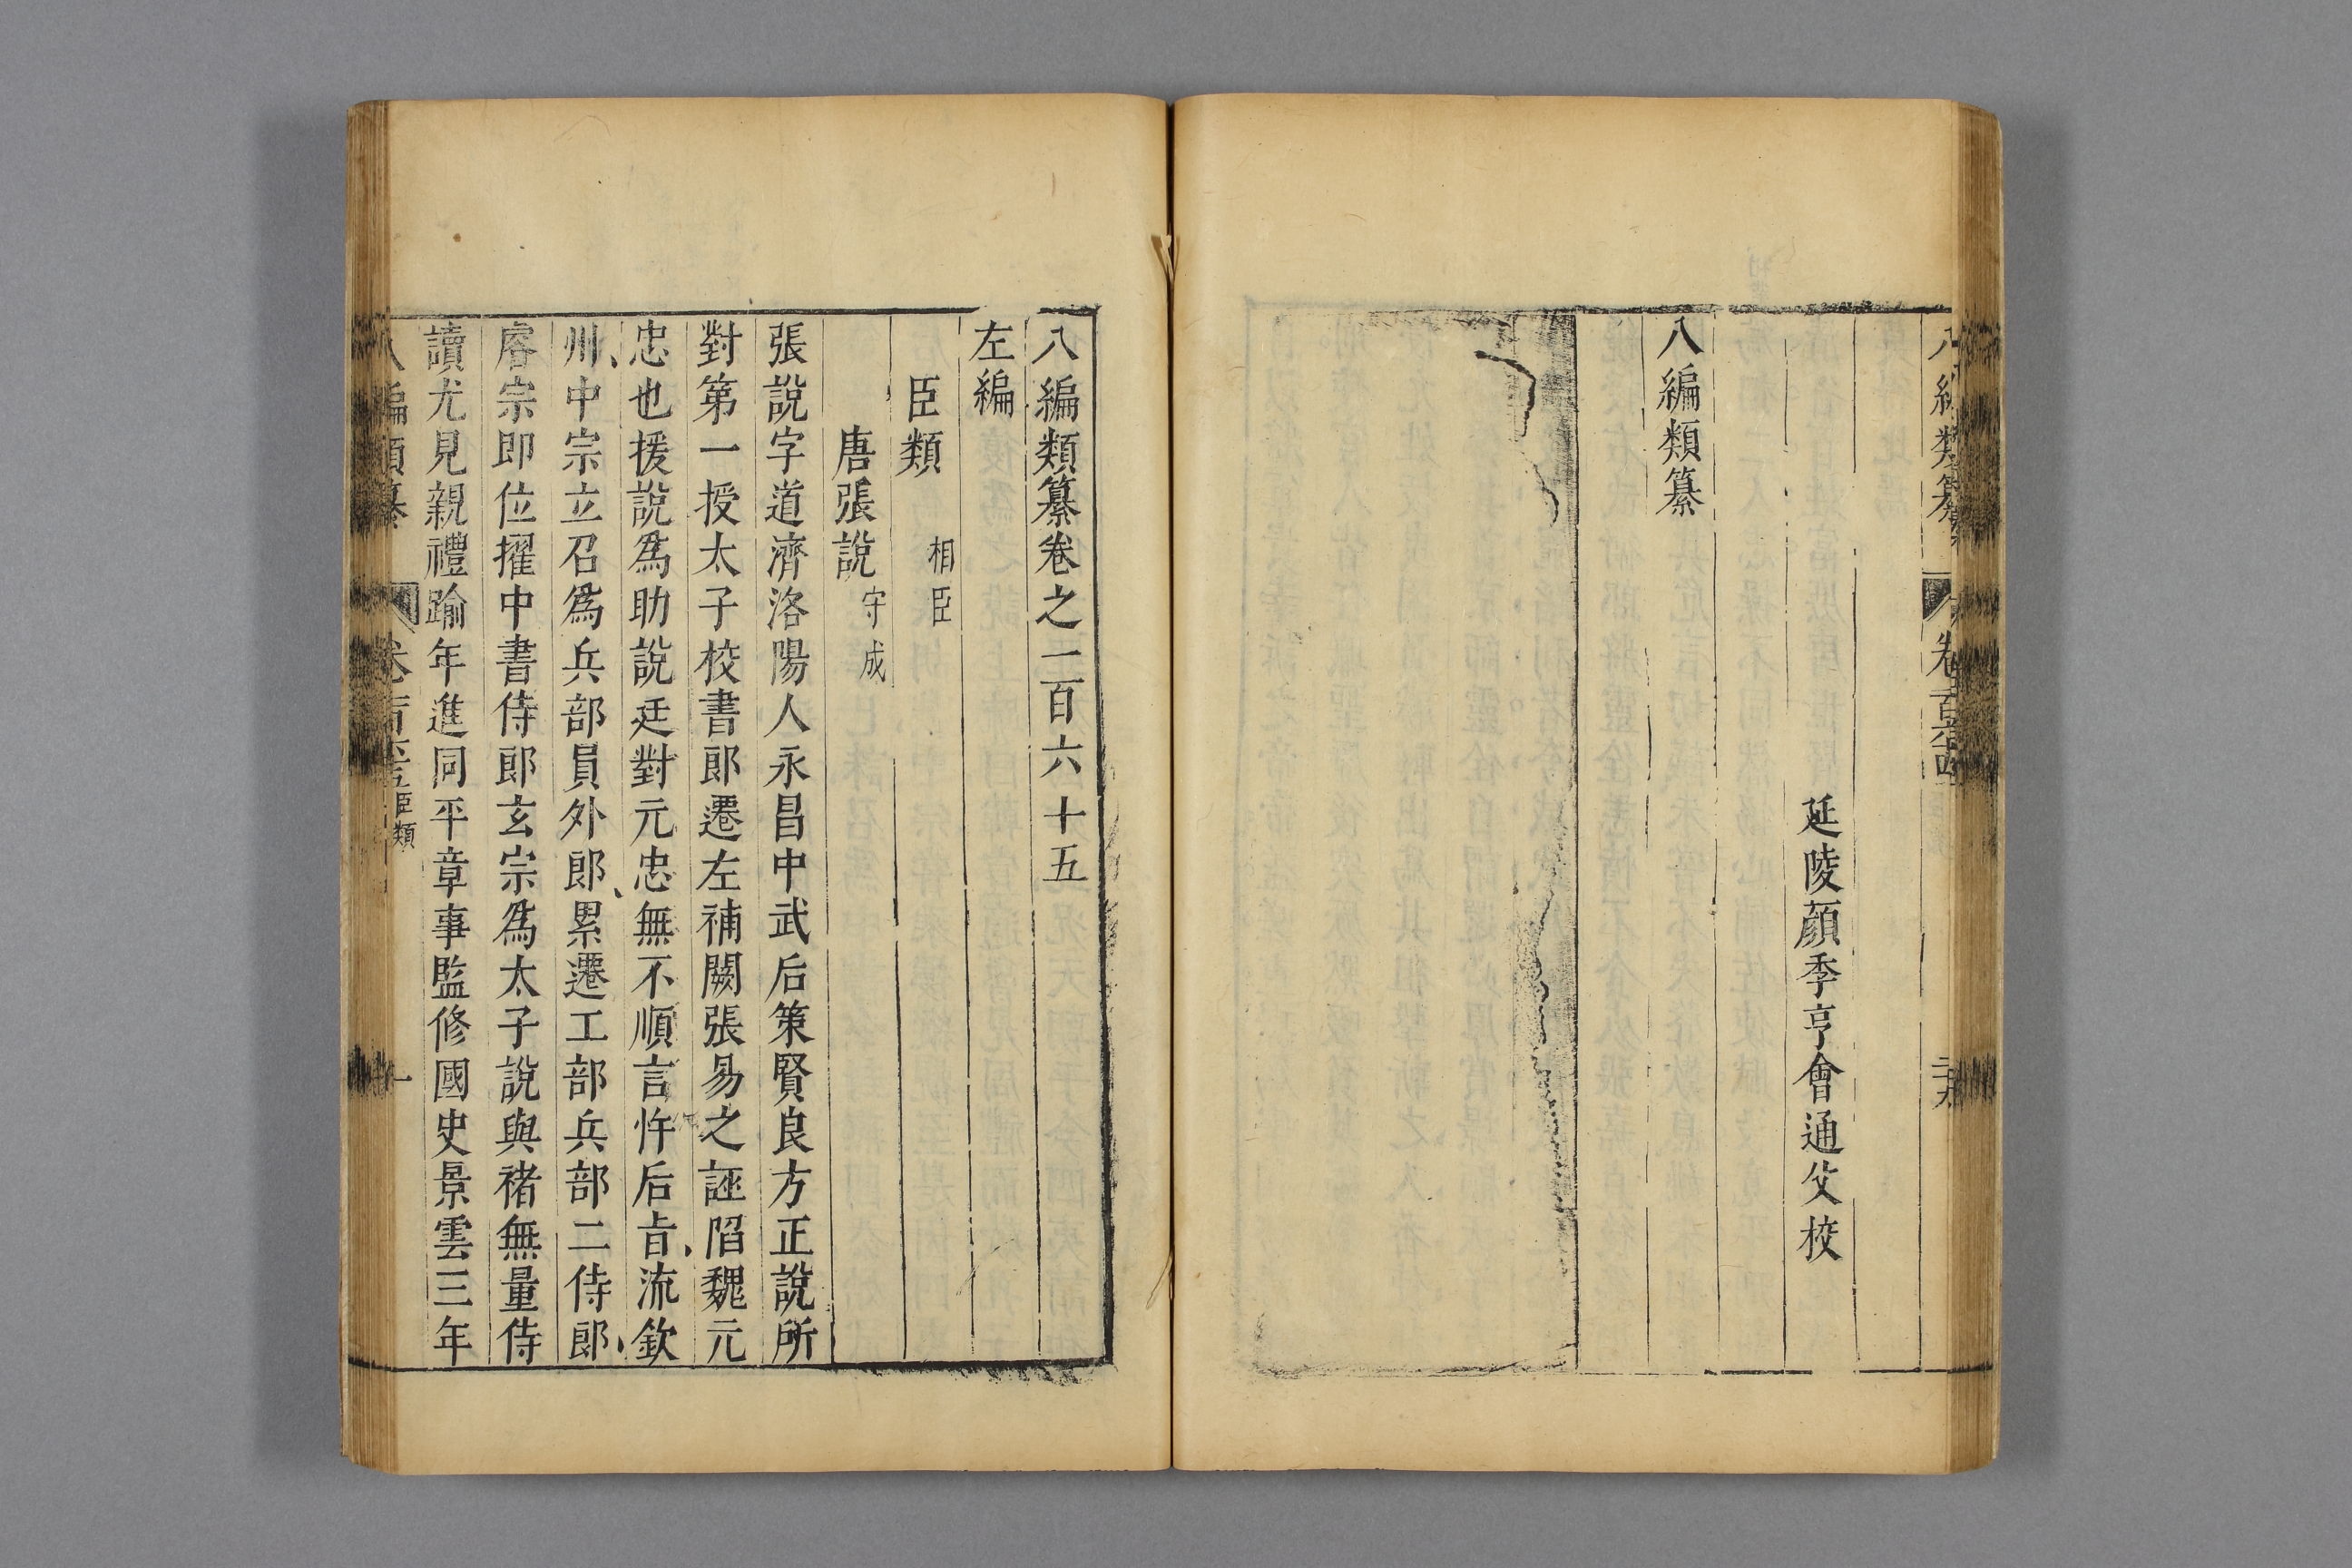 延陵顏季亨會通父校
八編類纂
八編類纂卷之一百六十五
左編
臣類 相臣
唐張說 守成
張說字道濟洛陽人永昌中武后策賢良方正說所
對第一授太子校書郎遷左補闕張易之誣陷魏元
忠也援說為助說廷對元忠無不順言忤后旨流欽
州中宗立召為兵部員外郎累遷工部兵部二侍郎
睿宗即位擢中書侍郎玄宗為太子說與褚無量侍
讀尤見親禮踰年進同平章事監修國史景雲三年